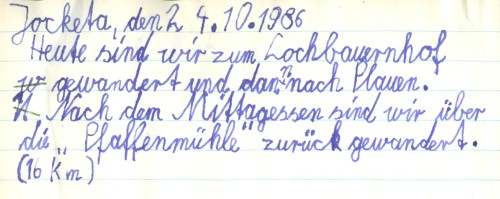 Jocketa, den 24.10.1986
Heute sind wir zum Lochbauernhof
gewandert und dann nach Plauen.
Nach dem Mittagessen sind wir über
die „Pfaffenmühle" zurück gewandert.
(16 Km)